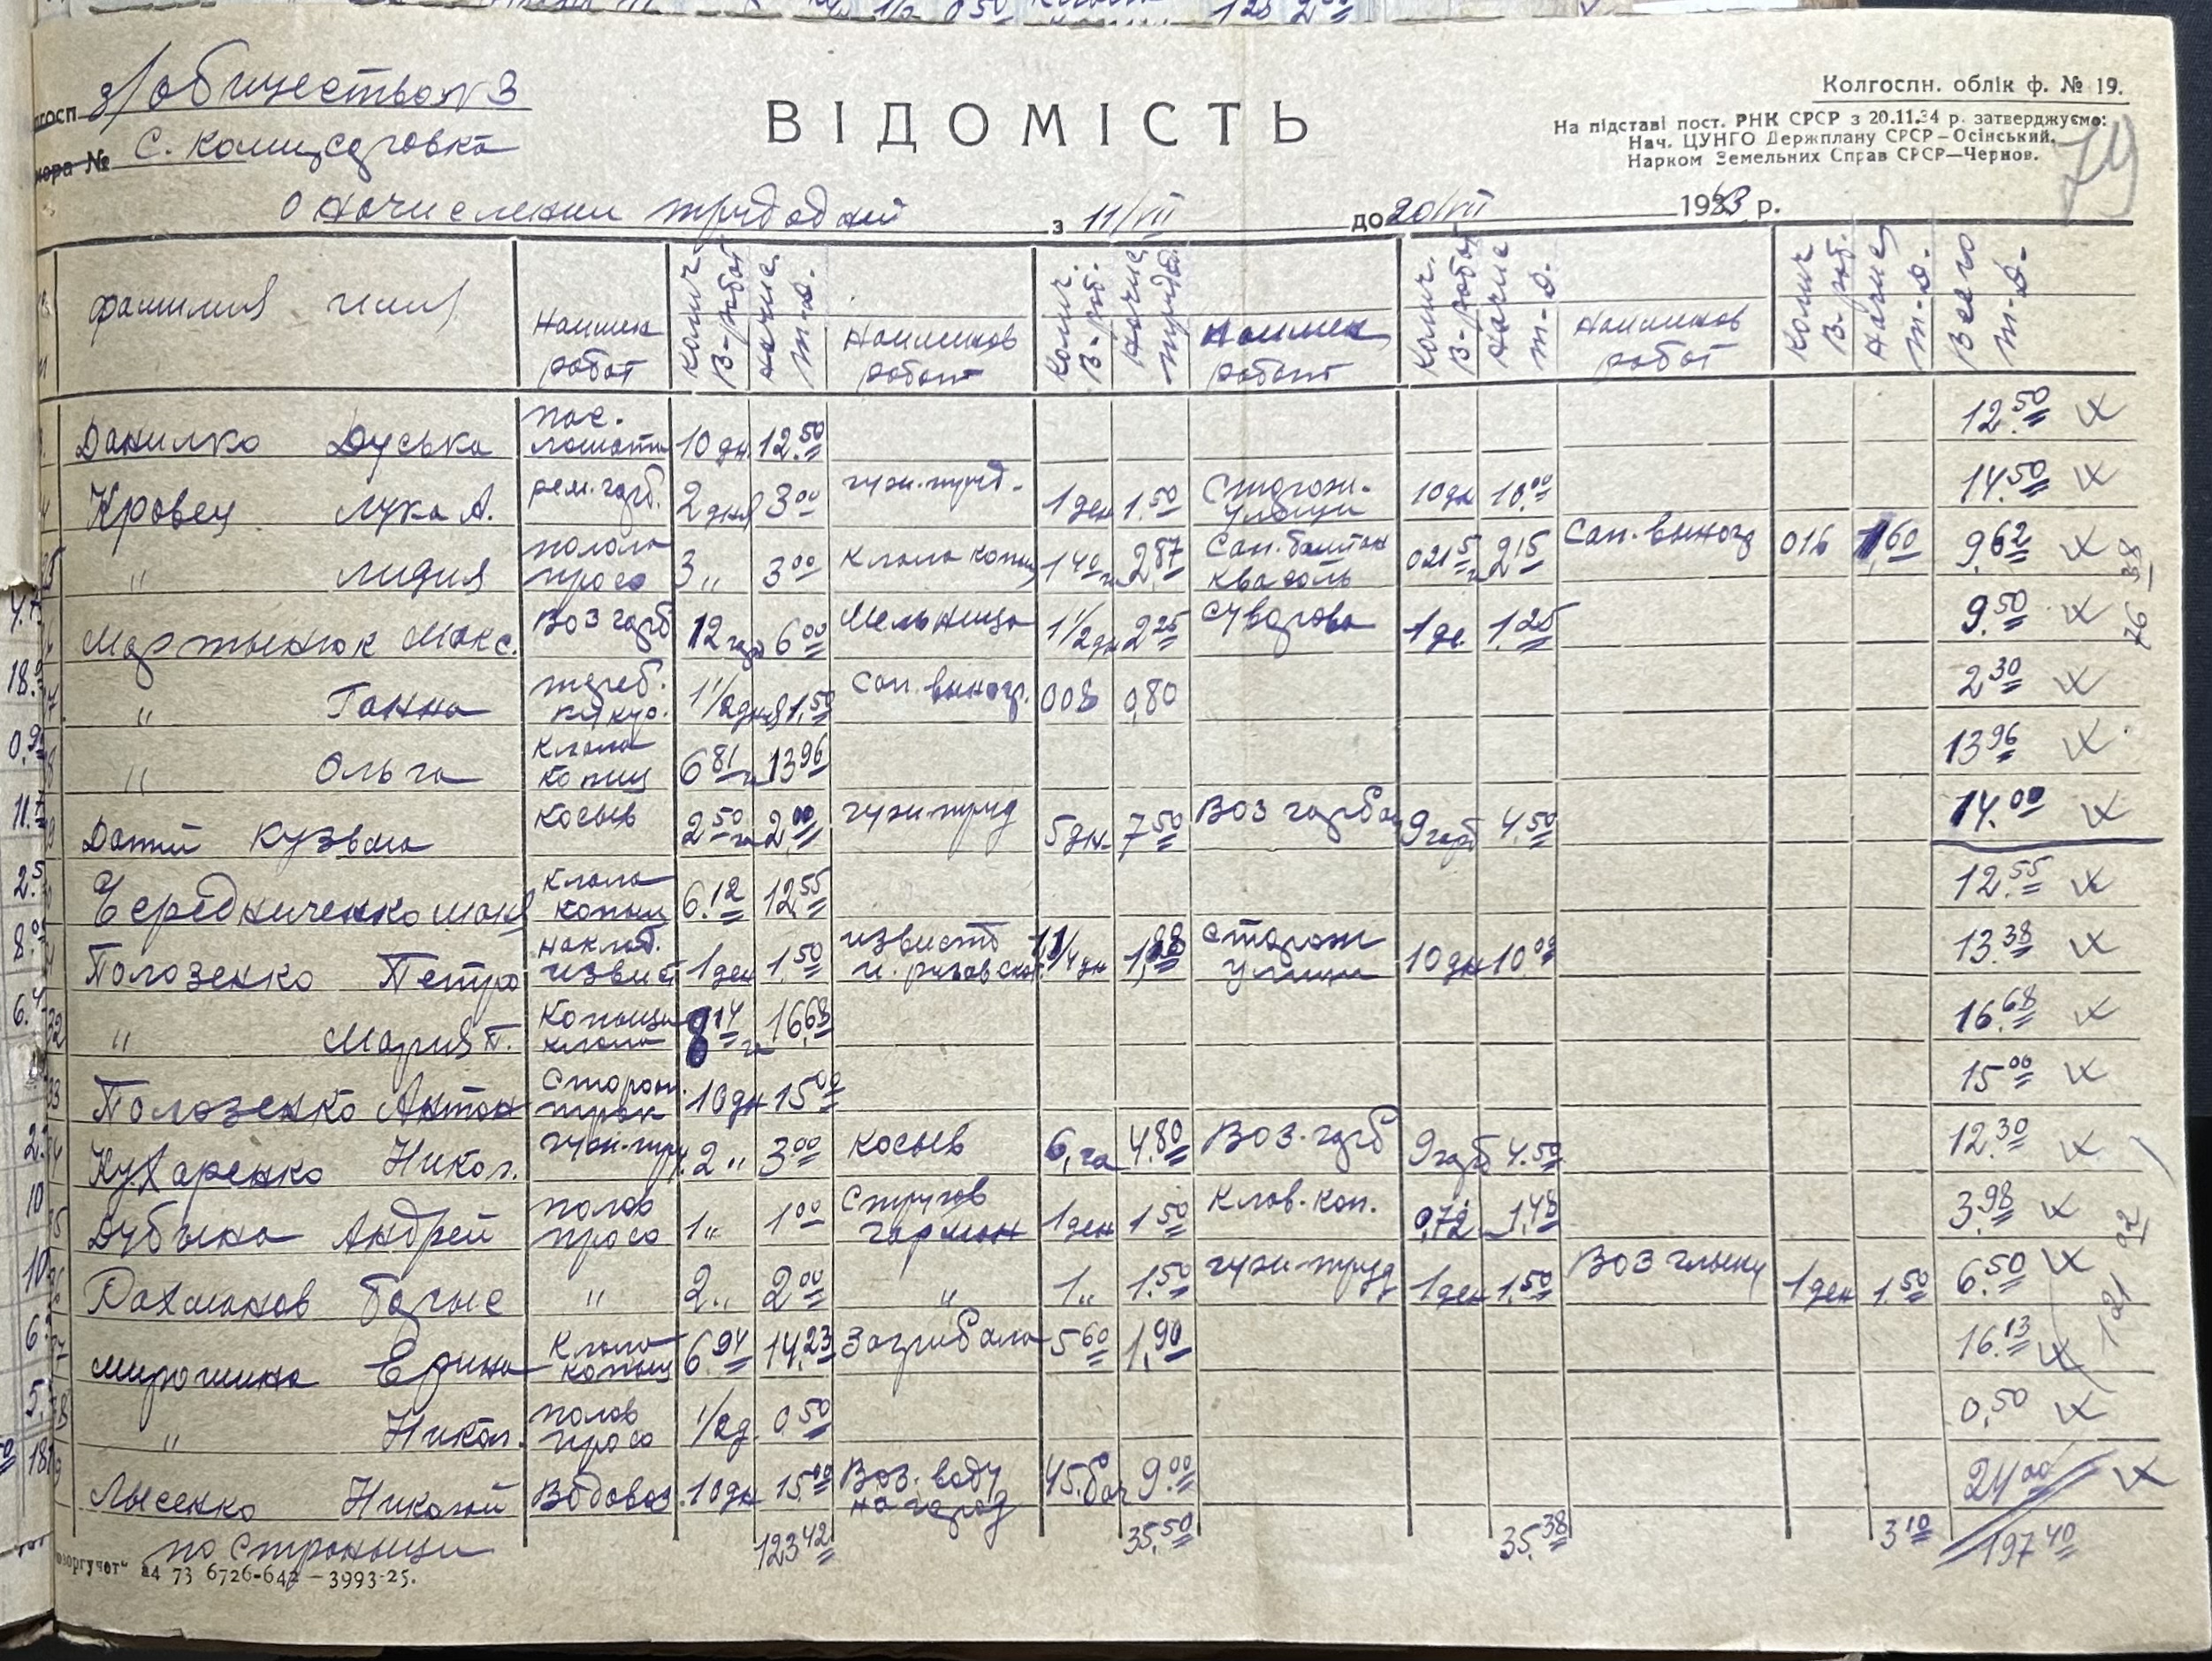 з/общество №3
Колгоспн. облік ф. № 19.
ВІДОМІСТЬ
На підставі пост. РНК СРСР з 20.11.34 р. затверджуємо:
Нач. ЦУНГО Держплану СРСР–Осінський.
Нарком Земельних Справ СРСР—Чернов.
79
о начислении трудодней з 11/VII до 20/VII 1943 р.
фамилия имя Наимен работ Колич. В-работ Начис. т-д. Наименов работ Колич. В-раб. Начис трудод Наимен работ Колич. В-работ Начис т-д. Наименов работ Колич В-раб. Начис т-д. Всего т-д.
Данилко Дуська пас. лошата 10 дн. 12.50 12.50
Кровец Лука А. рем. гарб. 2 дня 3 00 гуж. труд. 1 ден 1.50 Сторож. улици 10 дн 10.00 14.50
" Лидия полола просо 3 " 3 00 Клала копиц 1 40 га 2,87 Сап. баштан 0215 га 2 15 Сап. виногр 016 1,60 9,62
Мартынюк Макс. Воз гарб 12 гарб 6 00 Мельница 1 1/2 дн 2 25 1 де. 1.25 9.50
" Ганна 1 1/2 дня 1,50 Сап. виногр. 008 0,80 2 30
" Ольга Клала копиц 6 81 га 13 96 13 96
Датий Кузьма Косыв 2 50 га 2,00 гуж. труд 5 дн. 7 50 Воз гарба 9 гарб 4.50 14.00
Чередниченко Маня Клала копиц 6.12 12,55 12.55
Полозенко Петро наклад. 1 ден 1.50 1 1/4 дн 1,88 Сторож улици 10 дн 10 00 13.38
" Мария П. Копици клала 8 14 га 16,68 16.68
Полозенко Антон Сторож. 10 дн 15 00 15 00
Кухаренко Никол. гуж. труд. 2 " 3 00 Косыв 6, га 4.80 Воз. гарб 9 гарб 4.50 12.30
Дубына Андрей полов просо 1 " 1 00 Стругов гарман 1 ден 1 50 Клав. коп. 0,72 1,48 3,98
Рахманов Борыс " 2 " 2 00 " 1 " 1.50 гуж. труд 1 ден 1.50 Воз глыну 1 ден 1.50 6.50
Мирошина Ерина Клала копиц 6.94 14,23 Загрибала 5 60 1,90 16.13
" Никол. полов просо 1/2 д. 0 50 0,50
Лысенко Николай Водовоз. 10 дн 15.00 Воз. воду на город 45. боч 9.00 24 00
по страныци 123 42 35.50 35.38 3 10 197 40
76 38
121 02
а4 73 6726-642—3993-25.